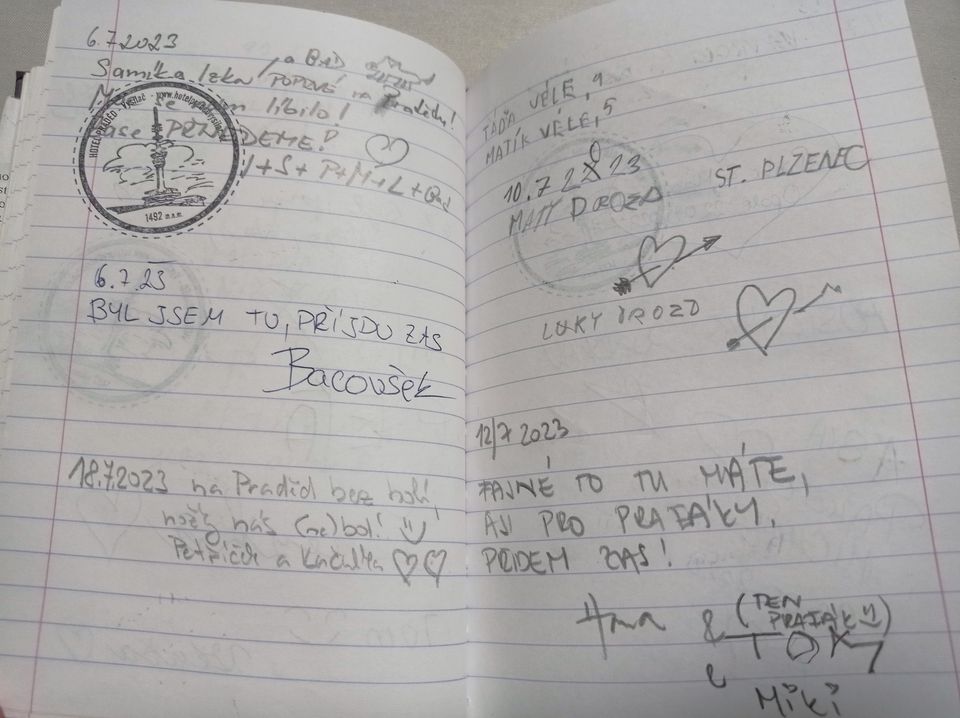 6.7.2023
Samika Izka, a Bad
POPRVÉ na Pradědu!
se líbilo!
PŘIJEDEME!
I+S+P+M+L+Bad
HOTEL PRADĚD - Vysílač - www.hotelpradedvysilac.cz
1492 m.n.m.
6.7.23
BYL JSEM TU, PŘIJDU ZAS
Bacoušek
18.7.2023 na Praděd bez holí,
nožky nás (ne)bolí!
Petříček a Kačulka
TÁĎA VELÉ, 9
MATÍK VELÉ, 5
10.7 2023
MATY DROZD
ST. PLZENEC
LUKY DROZD
12/7 2023
FAJNÉ TO TU MÁTE,
AJ PRO PRAŽÁKY,
PŘIDEM ZAS!
Hana & (TEN PRAŽÁK)
TOKY
& Miki